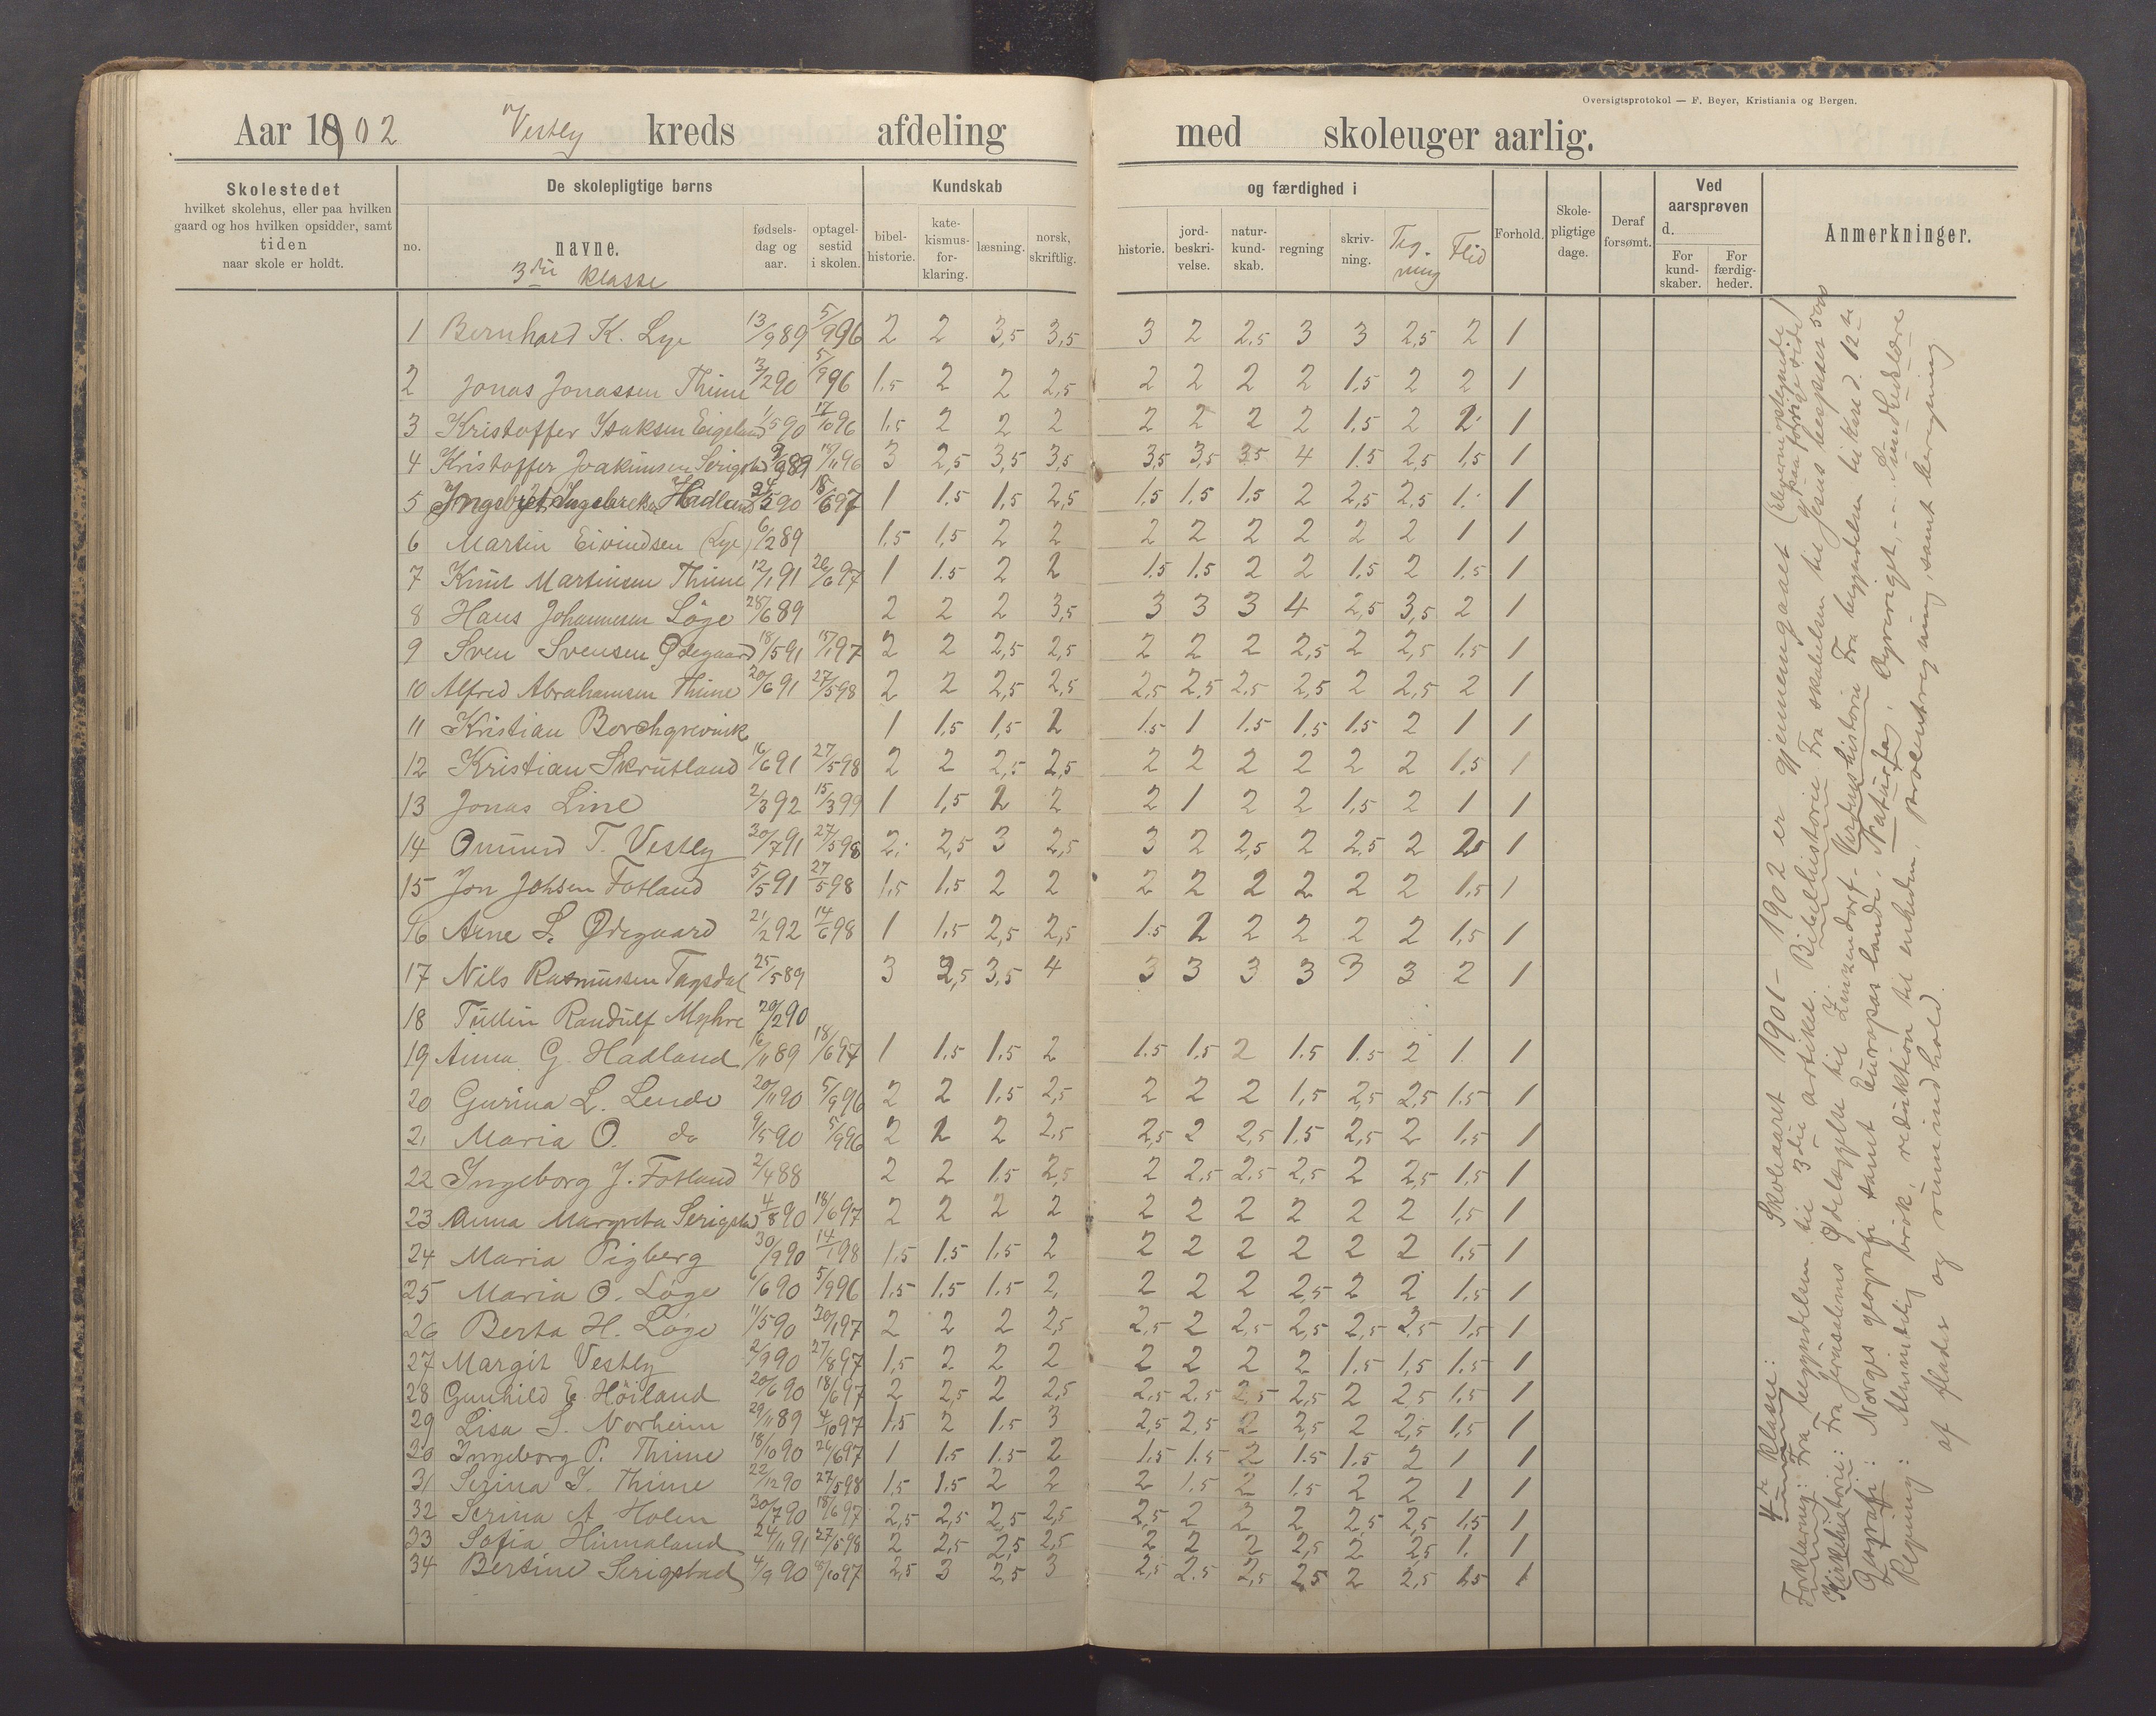 Oversigtsprotokol — F. Beyer, Kristiania og Bergen.
Aar 1902 Vestly kreds afdeling med skoleuger aarlig.
Skolestedet
hvilket skolehus, eller paa hvilken
gaard og hos hvilken opsidder, samt
tiden
naar skole er holdt.
De skolepligtige børns
no.
navne.
3die klasse
fødsels-
dag og
aar.
optagel-
sestid
i skolen.
Kundskab
bibel-
historie.
kate-
kismus-
for-
klaring.
læsning.
norsk,
skriftlig.
og færdighed i
historie.
jord-
beskri-
velse.
natur-
kund-
skab.
regning
skriv-
ning.
Teg-
ning
Flid
Forhold.
Skole-
pligtige
dage.
Deraf
forsømt.
Ved
aarsprøven
d.
For
kund-
skaber.
For
færdig-
heder.
Anmerkninger.
1 Bernhard K. Lye 13/9 89 5/9 96 2 2 3,5 3,5 3 2 2,5 3 3 2,5 2 1
2 Jonas Jonassen Thime 3/2 90 5/9 96 1,5 2 2 2,5 2 2 2 2 1,5 2 2 1
3 Kristoffer Isaksen Eigeland 1/5 90 17/10 96 1,5 2 2 2 2 2 2 2 1,5 2 2 1
4 Kristoffer Joakimsen Serigstad 9/9 89 11 96 3 2,5 3,5 3,5 3,5 3,5 3,5 4 1.5 2,5 1,5 1
5 Ingebret Ingebretsen Hadland 5 90 18/6 97 1 1.5 1,5 2,5 1.5 1,5 1,5 2 2,5 2,5 1. 1
6 Martin Eivindsen (Lye) 6/2 89 1.5 1,5 2 2 2 2 2 2 2 2 1 1
7 Knut Martinsen Thime 12/1 91 26/6 97 1 1.5 2 2 1.5 1,5 2 2 1,5 2 1,5 1
8 Hans Johannesen Löge 28/6 89 2 2 2 3,5 3 3 3 4 2,5 3,5 2 1
9 Sven Svensen Ødegaard 18/5 91 15/1 97 2 2 2,5 2,5 2 2 2 2,5 2 2,5 1,5 1
10 Alfred Abrahamsen Thime 20/6 91 27/5 98 2 2 2,5 2,5 2,5 2,5 2,5 2,5 2 2,5 2 1
11 Kristian Borchgrevink 1 1,5 1,5 2 1.5 1 1.5 1,5 1.5 2 1 1
12 Kristian Skrutland 16/6 91 27/5 98 2 2 2,5 2,5 2 2 2 2 2 2 1,5 1
13 Jonas Line 2/3 92 15/3 99 1 1,5 2 2 2 1 2 2 1,5 2 1 1
14 Omund T. Vestly 30/7 91 27/5 98 2. 2,5 3 2,5 3 2 2,5 2 2,5 2 2,5 1
15 Jon Johsen Fotland 5/5 91 27/5 98 1,5 1,5 2 2 2 2 2 2 2 2 1,5 1
16 Arne L. Ødegaard 21/2 92 14/6 98 1 1,5 2,5 2,5 1.5 2 2 2 2 2 1,5 1
17 Nils Rasmussen Tagsdal 25/5 89 3 2,5 3,5 4 3 3 3 3 3 3 2 1
18 Tullin Randulf Myhre 20/2 90
19 Anna G. Hadland 16/11 89 18/6 97 1 1.5 1.5 2 1.5 1,5 2 1.5 1.5 2 1. 1
20 Gurina L. Lende 20/11 90 5/9 96 2 2 1.5 2,5 2 2 2 1,5 2,5 2,5 1.5 1
21 Maria O. do 9/5 90 5/9 96 2 2 2 2,5 2,5 2 2,5 1.5 2,5 2 1,5 1
22 Ingeborg J. Fotland 2/4 88 2 2 1.5 2,5 2 2,5 2,5 2,5 2 2,5 1,5 1
23 Anna Margreta Serigstad 4/8 90 18/6 97 2 2 2 2 2 2 2 2 2 2 1,5 1
24 Maria Tigberg 30/9 90 14/1 98 1,5 1.5 1,5 2 2 2 2 2 2 2 1,5 1
25 Maria O. Löge 6/6 90 5/9 96 1.5 1,5 1.5 2, 2 2 2 2,5 2 2 1,5 1
26 Berta H. Löge 11/5 90 30/1 97 2 2 2 2,5 2,5 2 2,5 2,5 2,5 2,5 1,5 1
27 Margit Vestly 2/9 90 27/8 97 1,5 2 2 2 2 2 2 2 1.5 1,5 1.5 1
28 Gunhild E. Höiland 20/6 90 18/6 97 2 2,5 2 2,5 2,5 2,5 2,5 2,5 2 2,5 1,5 1
29 Lisa S. Norheim 29/11 89 4/10 97 1,5 2 1.5 3 2,5 2,5 2 2,5 2 2,5 1,5 1
30 Ingeborg P. Thime 18/10 90 26/6 97 1 1.5 1.5 2 1.5 1.5 2 1.5 1,5 2 1 1
31 Serina I. Thime 22/12 90 27/5 98 1,5 1.5 2 2 2 1.5 2 1.5 2 2 1 1
32 Serina A Holen 30/7 90 18/6 97 2,5 2,5 2,5 2,5 2,5 2 2 2 2,5 2,5 1,5 1
33 Sofia Hinnaland 24/11 91 27/5 98 2 2,5 2,5 2,5 2 2 2 2,5 2 2,5 1. 1
34 Bertine Serigstad 4/9 90 /10 97 2,5 3 2,5 3 2,5 2.5 2,5 2,5 2 2,5 1,5 1
4de klasse: Skoleaaret 1901–1902 er gjennemgaaet (Eleverne optegnede paa forrige side)
Forklaring: Fra begyndelsen til 3die artikel. Bibelhistorie Fra skabelsen til Jesus bespiser 5000
Kirkehistorie: Fra Jerusalems Ødelæggelse til Zinzendorf. Verdenshistorie Fra begyndelsen til 12te
Geografi: Norges geografi samt Europas lande. Naturfag: Dyreriget, Sundhedslære
Regning: Almindelig brök, reduktion til enheden, procentregning, samt beregning
af flader og rumindhold.